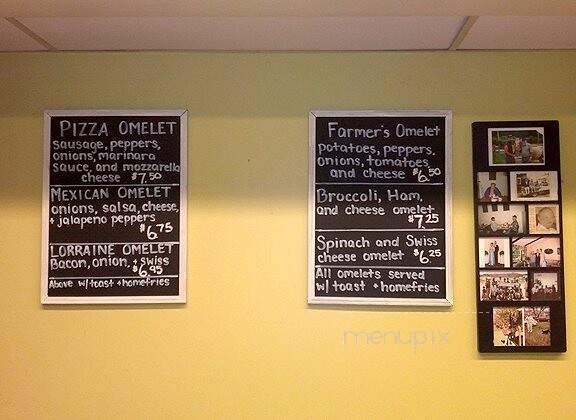 PIZZA OMELET
sausage, peppers,
onions, marinara
sauce, and mozzarella
cheese $7.50
MEXICAN OMELET
onions, salsa, cheese,
+ jalapeno peppers
$6.75
LORRAINE OMELET
Bacon, onion, + swiss
$6.95
Above w/toast + homefries
Farmer's Omelet
potatoes, peppers,
onions, tomatoes,
and cheese $6.50
Broccoli, Ham,
and cheese omelet
$7.25
Spinach and Swiss
cheese omelet $6.25
All omelets served
w/ toast + homefries
menupix